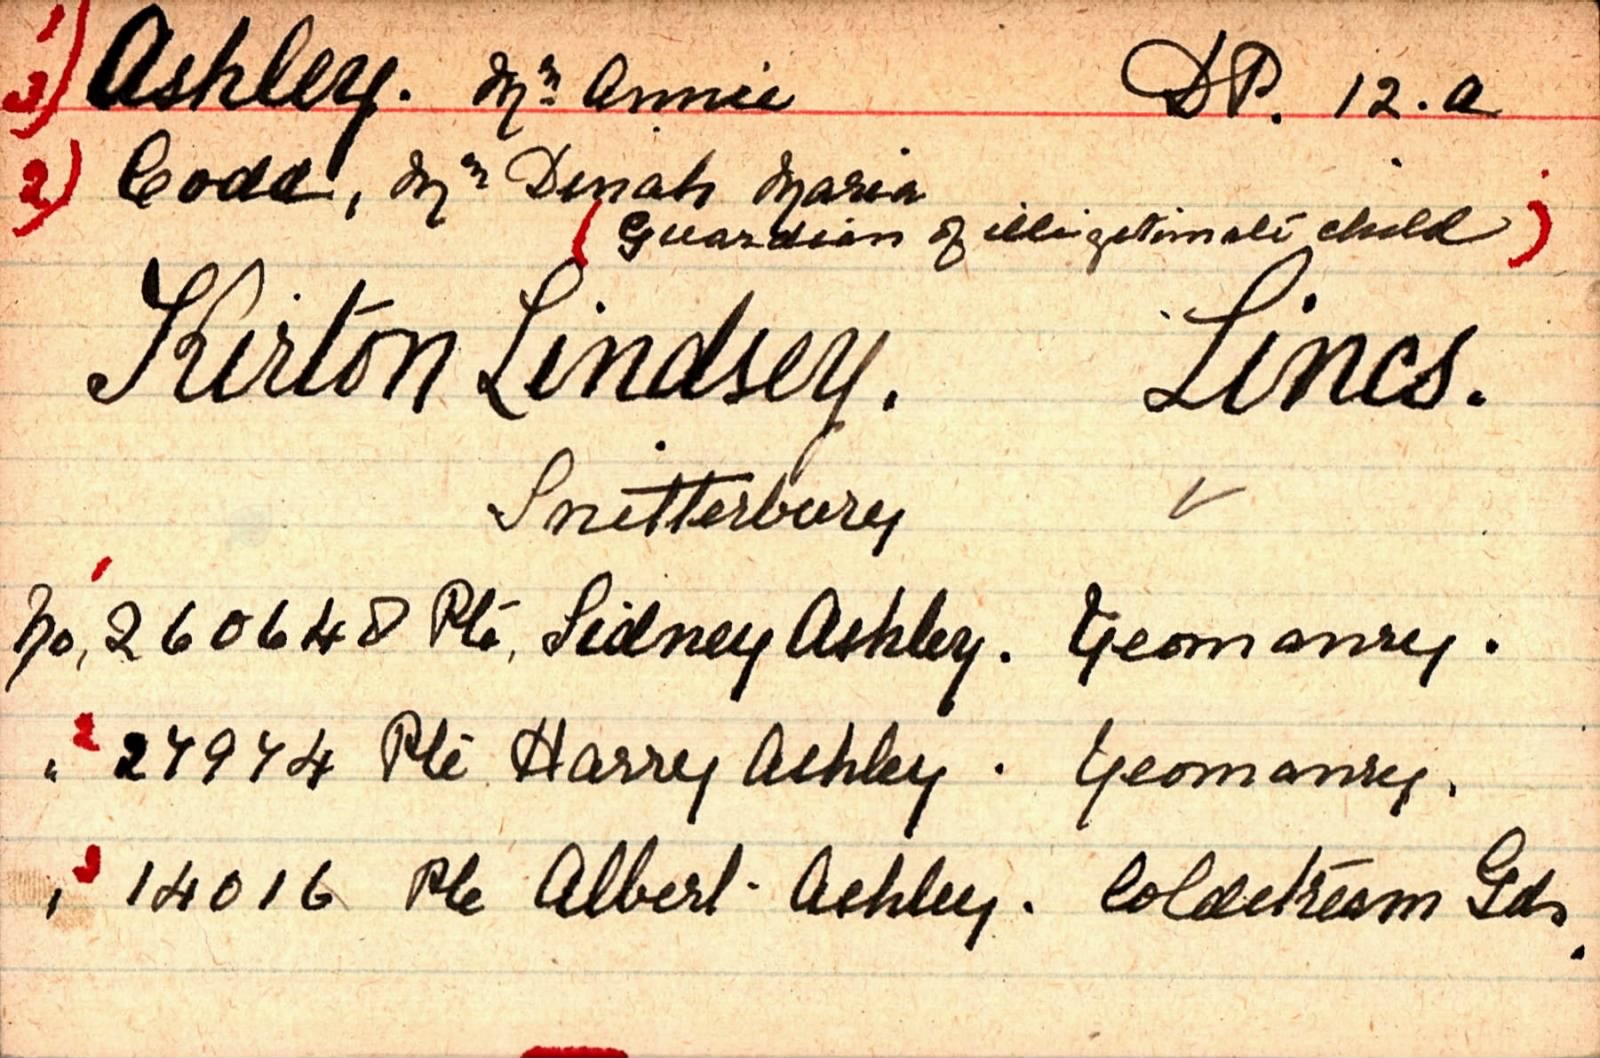 1) 3) Ashley. Mrs Annie DP. 12.a
2) Codd, Mrs Dinah Maria
(Guardian of illigetimate child)
Kirton Lindsey. Lincs.
Snitterbury
1 No, 260648 Pte, Sidney Ashley. Yeomanry.
" 2 27974 Pte Harry Ashley. Yeomanry.
" 3 14016 Pte Albert Ashley. Coldstream Gds.